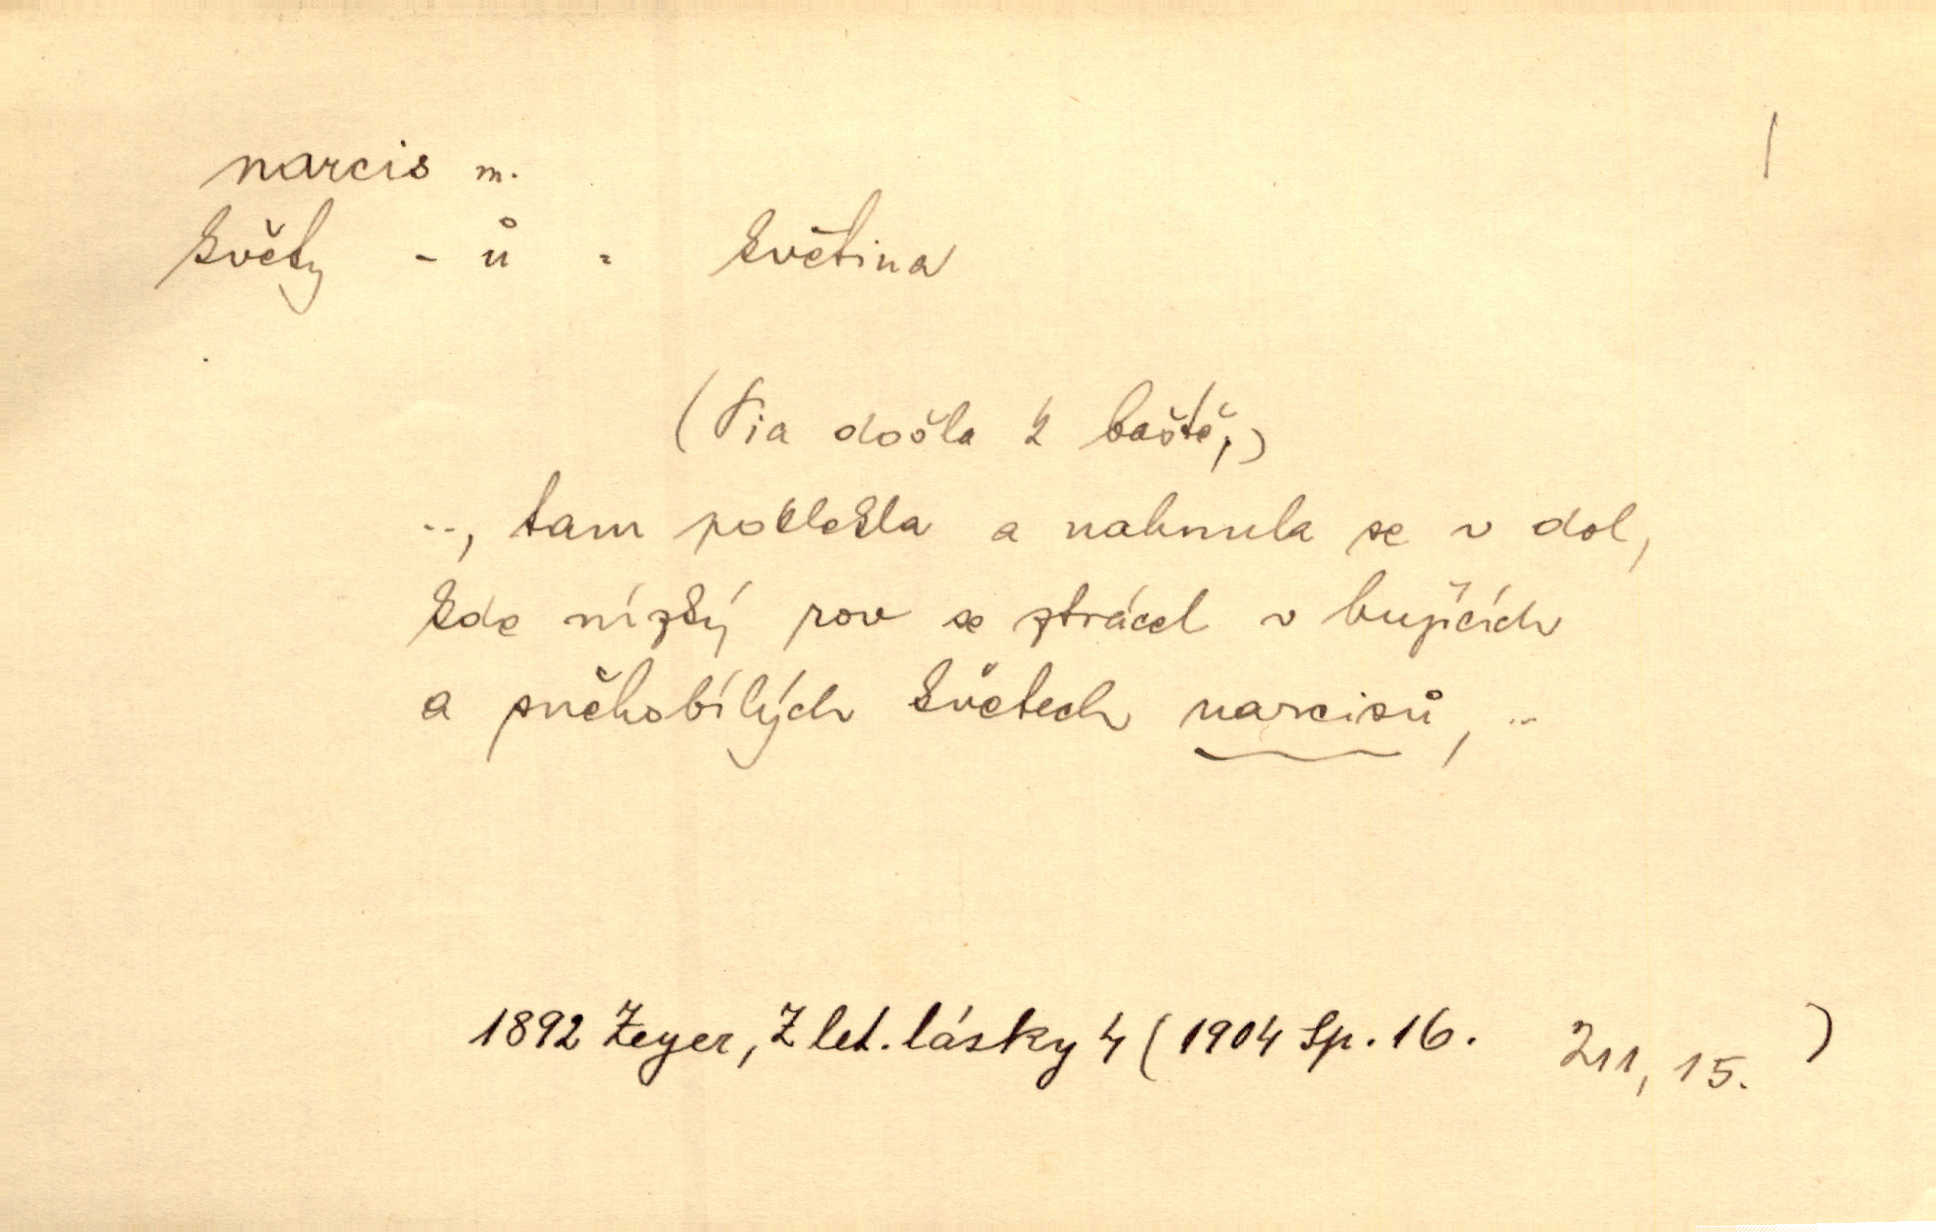 narcis m.
květy - ů = květina
(Pia došla k baště,)
.., tam poklekla a nahnula se v dol,
kde nízký rov se ztrácel v bujících
a sněhobílých květech narcisů, ..
1892 Zeyer, Z let. lásky 4 (1904 Sp. 16. 211, 15. )